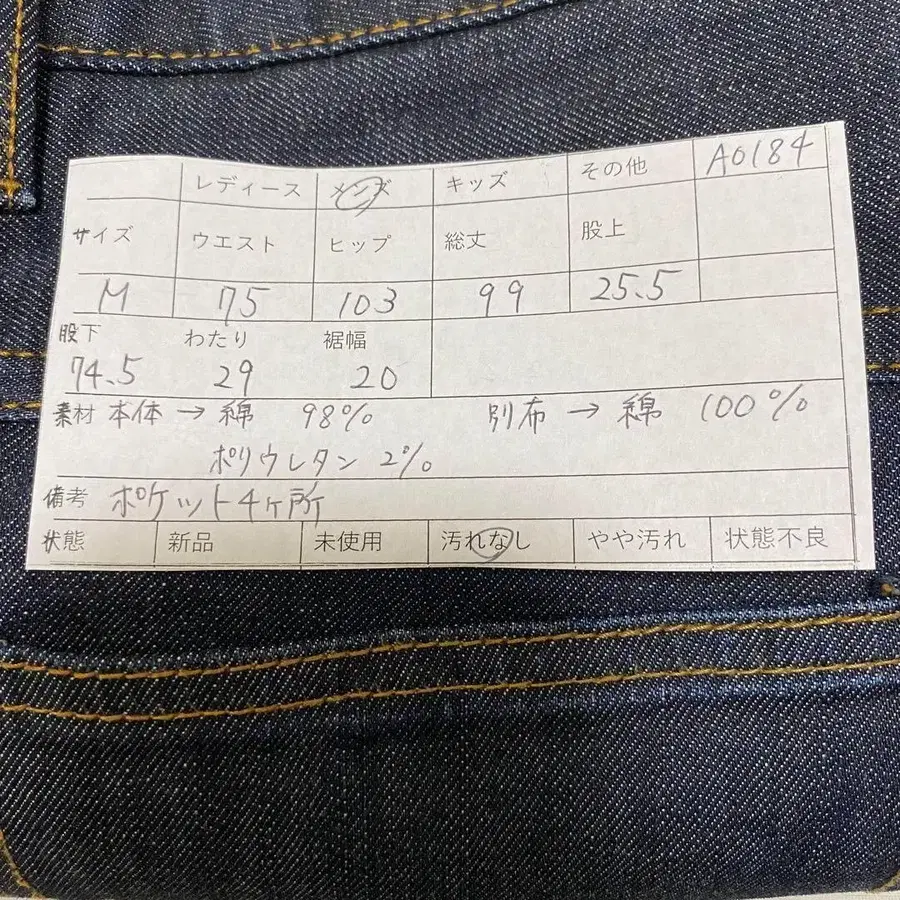 レディース メンズ キッズ その他 A0184
サイズ ウエスト ヒップ 総丈 股上
M 75 103 99 25.5
股下 わたり 裾幅
74.5 29 20
素材 本体 → 綿 98% 別布 → 綿 100%
ポリウレタン 2%
備考 ポケット4ヶ所
状態 新品 未使用 汚れなし やや汚れ 状態不良